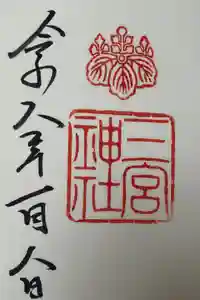 令和八年一月八日
二宮
神社